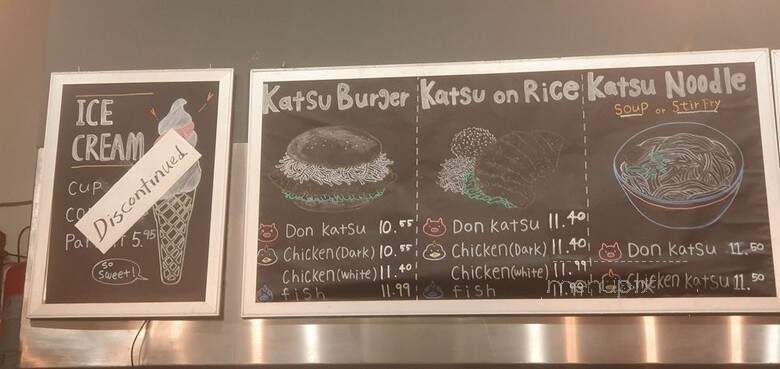 ICE
CREAM
Discontinued
CUP
5.95
so
sweet!
Katsu Burger
Don Katsu 10.55
Chicken(Dark) 10.55
Chicken(white) 11.40
fish 11.99
Katsu on Rice
Don Katsu 11.40
Chicken(Dark) 11.40
Chicken(white) 11.99
fish 11.99
Katsu Noodle
Soup or Stir Fry
Don Katsu 11.50
Chicken Katsu 11.50
menupix